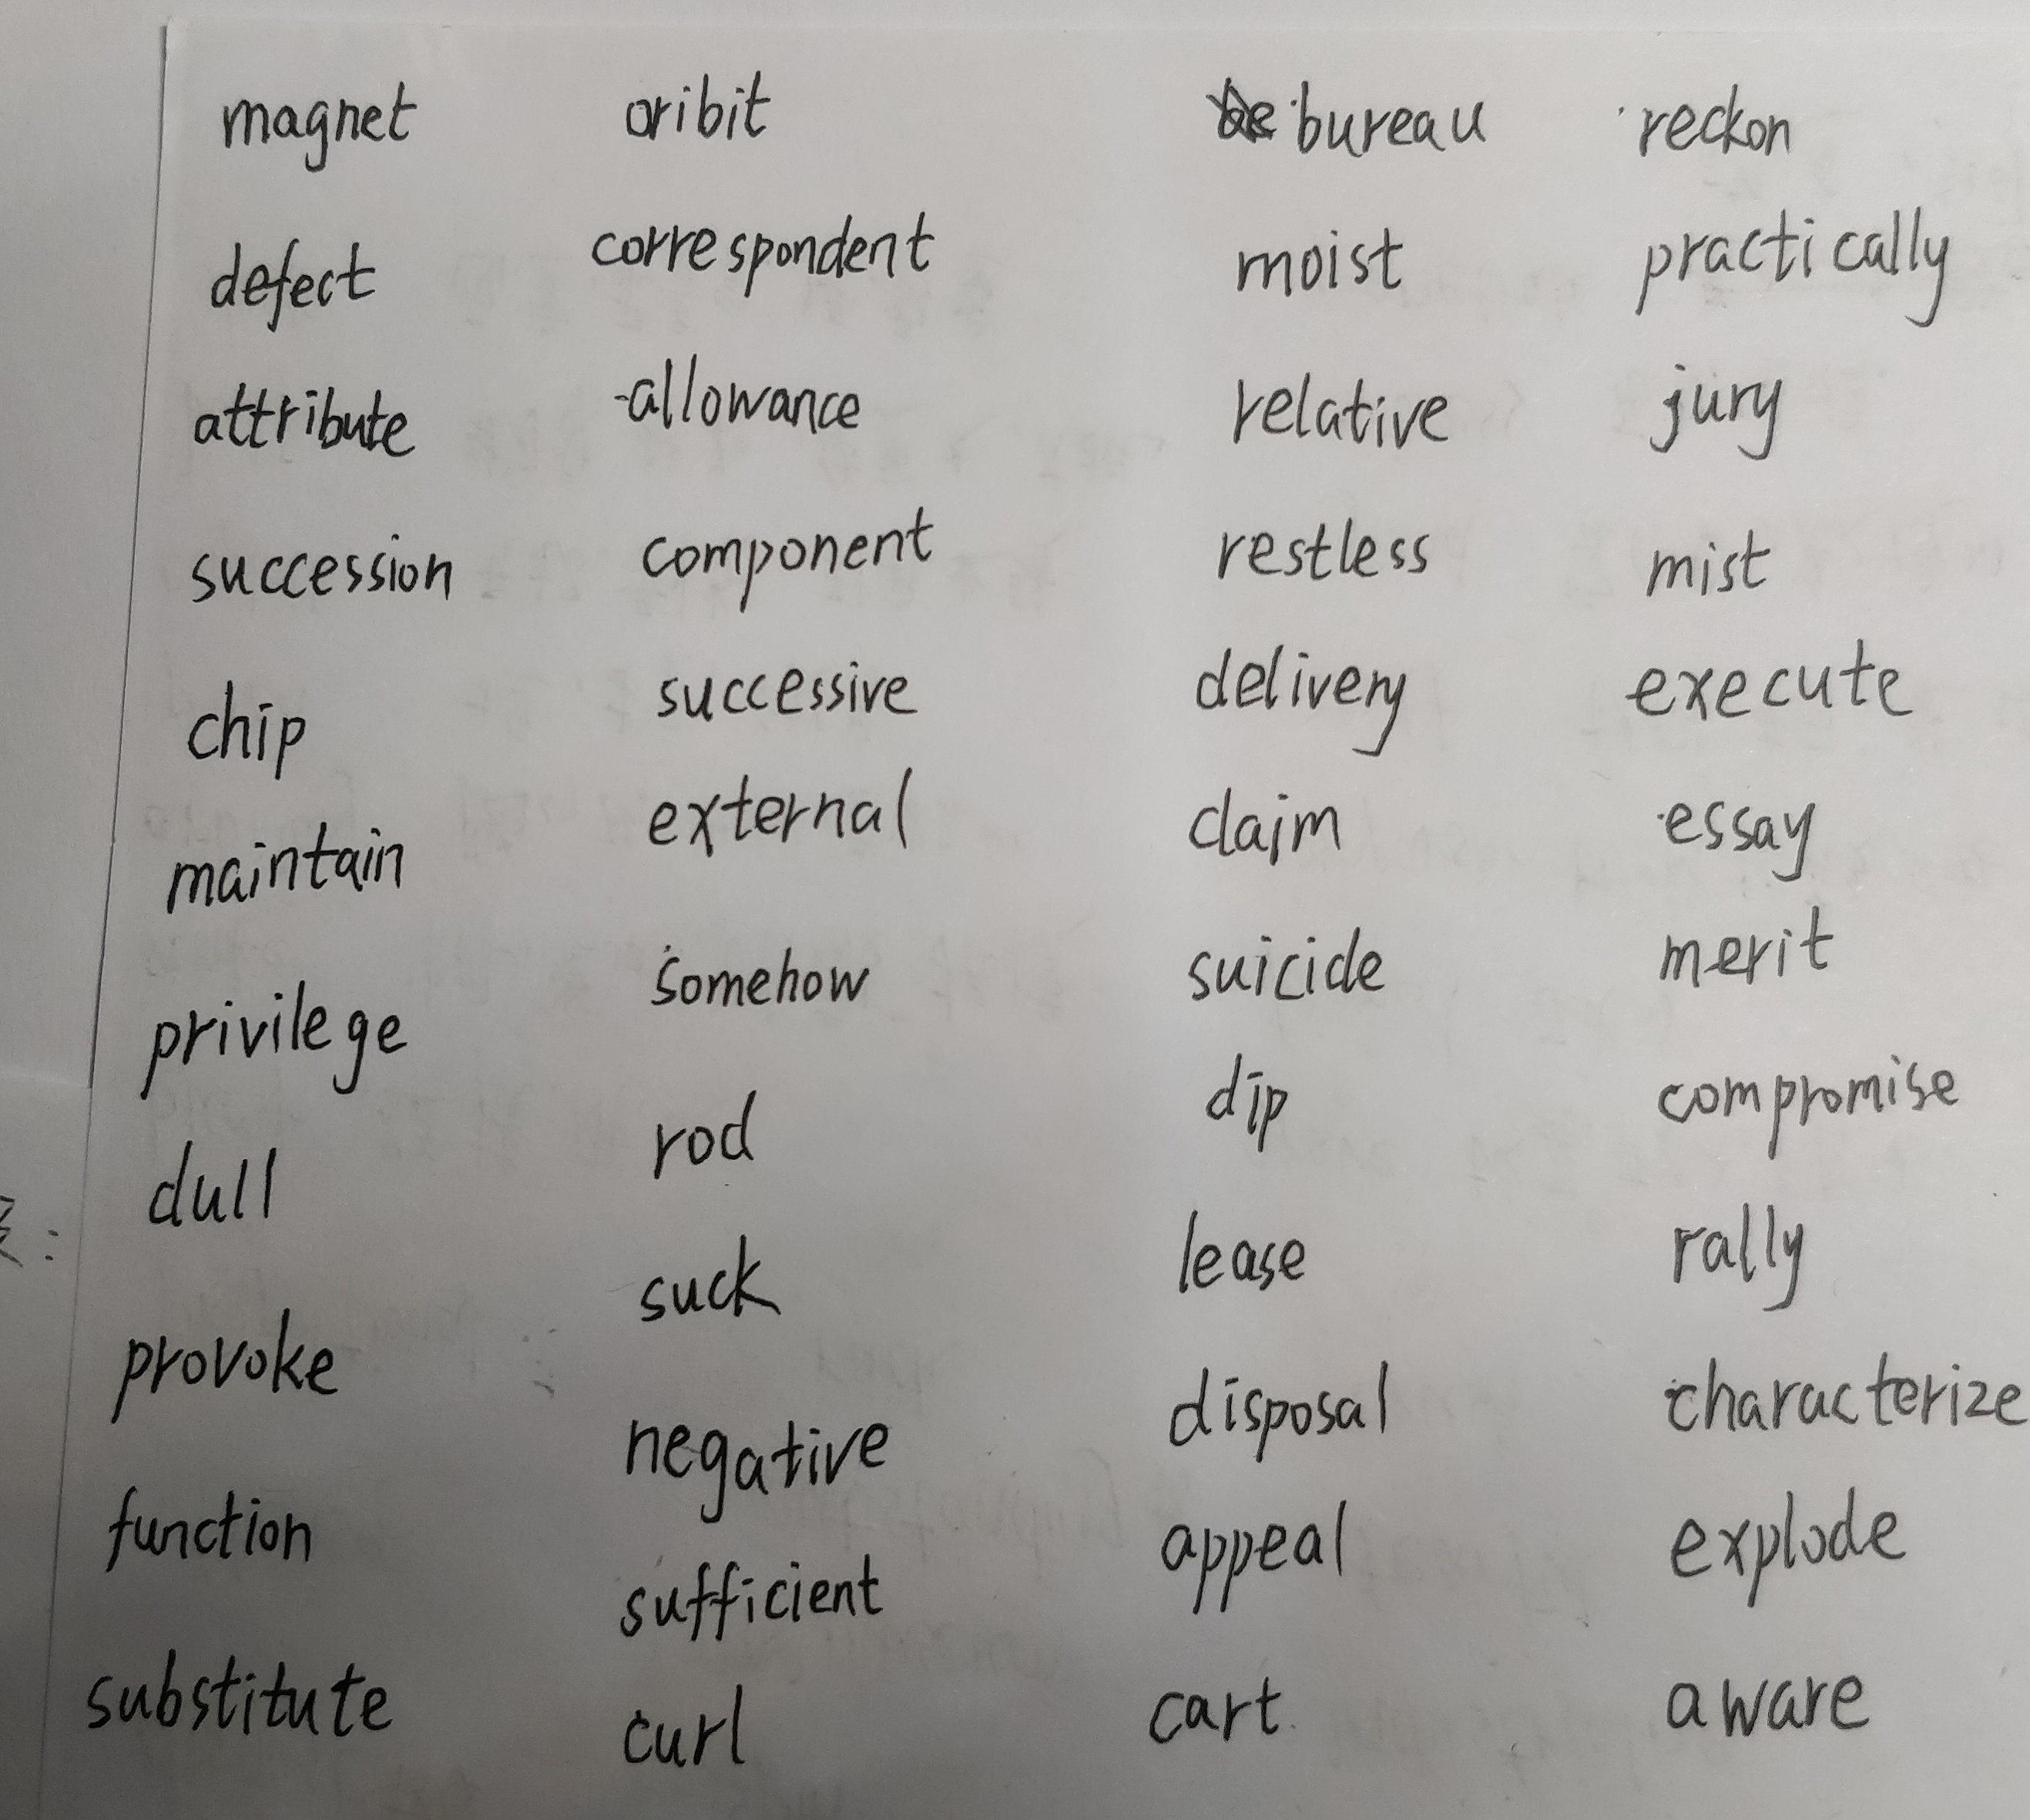 magnet oribit bureau reckon
defect correspondent moist practically
attribute allowance relative jury
succession component restless mist
chip successive delivery execute
maintain external claim essay
privilege somehow suicide merit
dull rod dip compromise
provoke suck lease rally
function negative disposal characterize
substitute sufficient appeal explode
curl cart aware